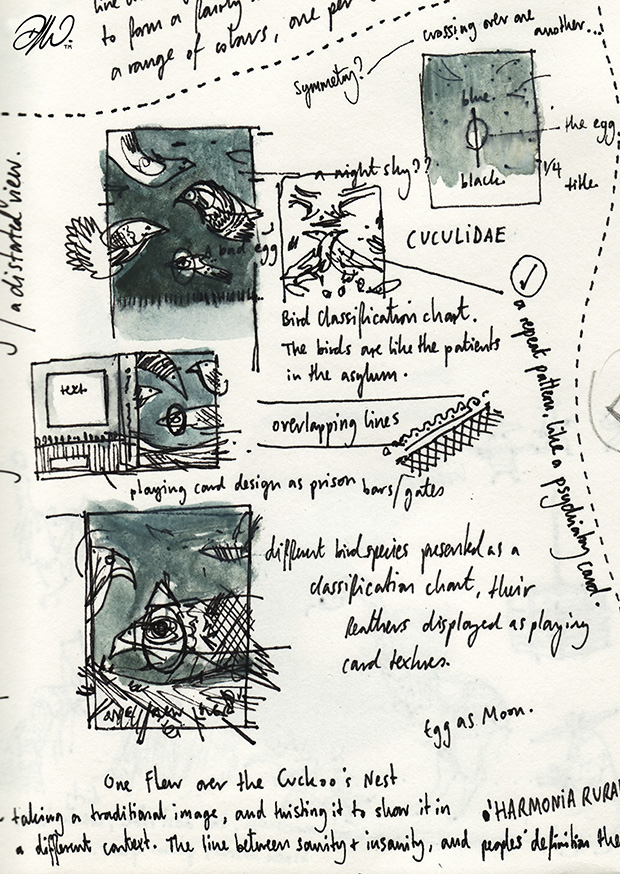 to form a
a range of colours, one per
TM
crossing over one another...
symmetry?
a distorted view.
blue
the egg
black
1/4
title
a night sky??
A bad egg
CUCULIDAE
Bird Classification chart.
The birds are like the patients
in the asylum.
a repeat pattern. like a psychiatry card.
text
overlapping lines
playing card design as prison bars/gates
different bird species presented as a
classification chart, their
feathers displayed as playing
card textures.
Egg as Moon.
One Flew over the Cuckoo's Nest
taking a traditional image, and twisting it to show it in
a different context. The line between sanity + insanity, and peoples' definition
HARMONIA RURA